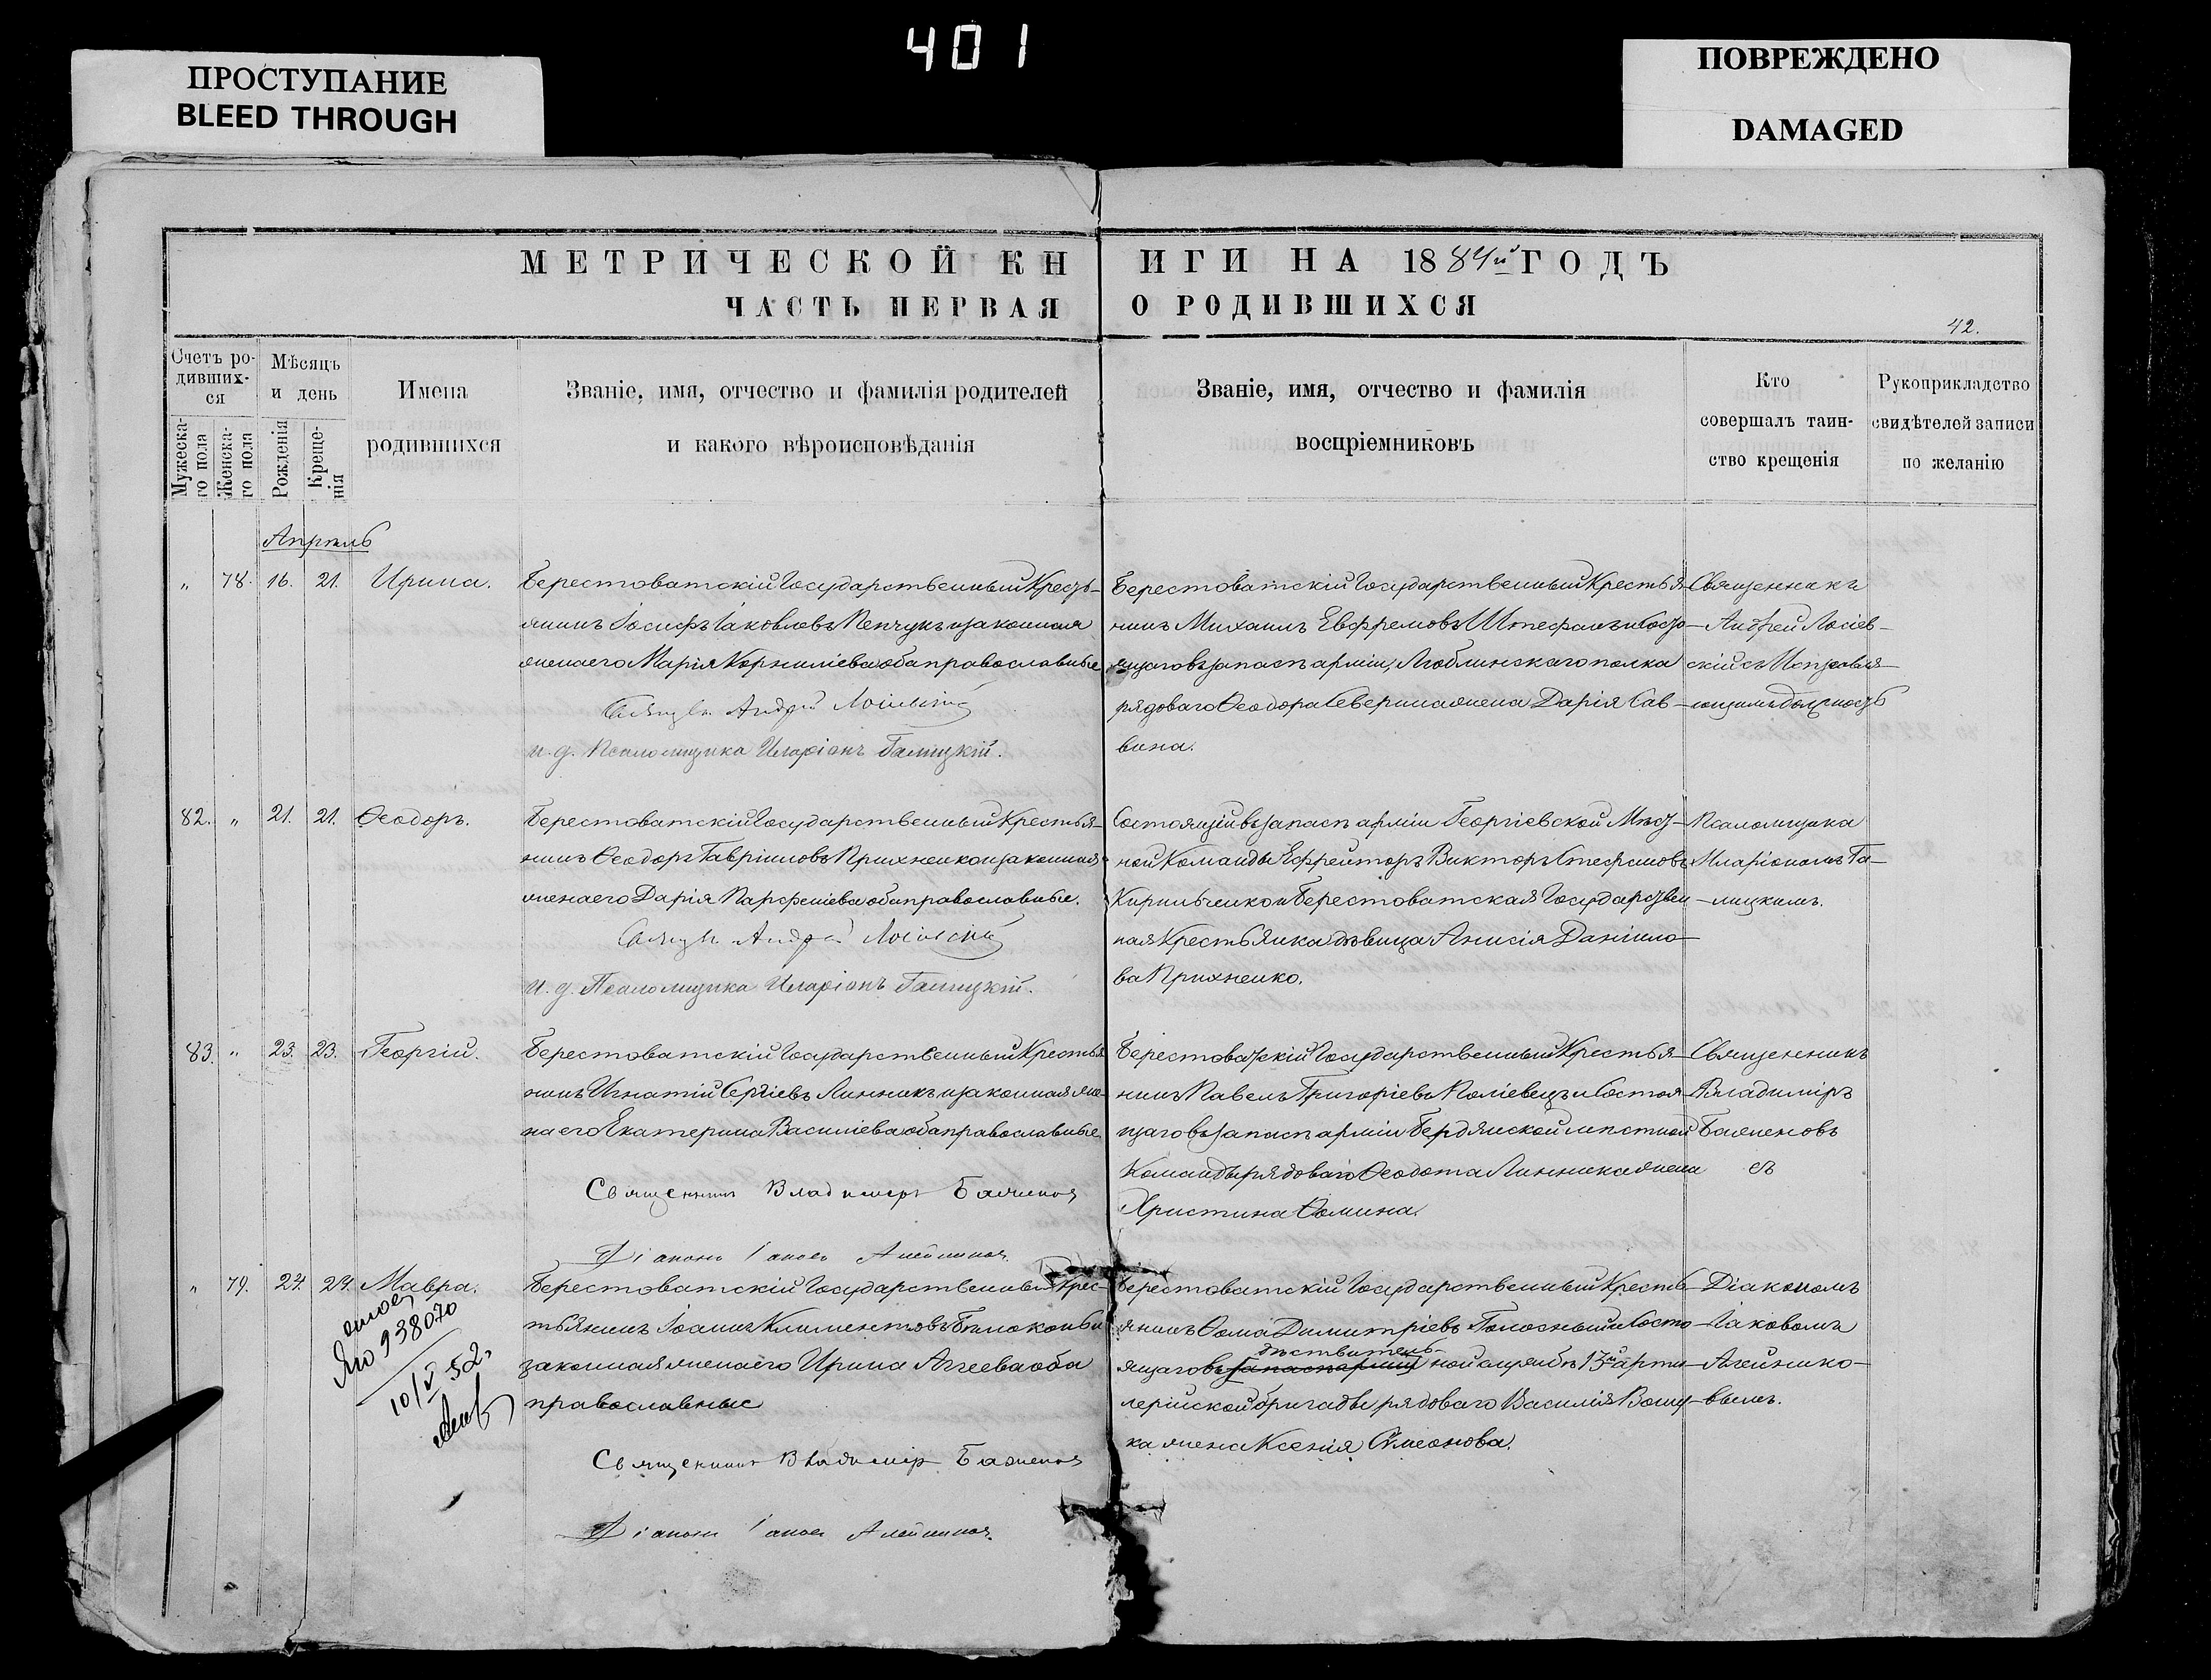 401
ПРОСТУПАНИЕ
BLEED THROUGH
ПОВРЕЖДЕНО
DAMAGED
МЕТРИЧЕСКОЙ КНИГИ НА 1884й ГОДЪ
ЧАСТЬ ПЕРВАЯ О РОДИВШИХСЯ
42.
Счетъ ро-
дивших-
ся
Мѣсяцъ
и день
Имена
родившихся
Званіе, имя, отчество и фамилія родителей
и какого вѣроисповѣданія
Званіе, имя, отчество и фамилія
воспріемниковъ
Кто
совершалъ таин-
ство крещенія
Рукоприкладство
свидѣтелей записи
по желанію
Мужеска-
го пола
Женска-
го пола
Рожденія
Креще-
нія
Апрѣль
„ 78. 16. 21. Ирина.
Берестоватскій Государственный Кресть-
янинъ Іосифъ Іаковлевъ Пенчукъ и законная
жена его Марія Корниліева оба православные
Священ. Андрей Лосіевскій
и. д. Псаломщика Иларіонъ Галицкій.
Берестоватскій Государственный Крестья-
нинъ Михаилъ Евфремовъ Штефанъ и Состо-
ящаго въ запасѣ арміи, Люблинскаго полка
рядоваго Ѳеодора Северина жена Дарія Сав-
вина.
Священникъ
Андрей Лосіев-
скій съ Исправля-
ющимъ должность
82. „ 21. 21. Ѳеодоръ.
Берестоватскій Государственный Крестья-
нинъ Ѳеодоръ Гавріиловъ Прихненко и законная
жена его Дарія Парфеніева оба православные.
Священ. Андрей Лосіевскій
и. д. Псаломщика Иларіонъ Галицкій.
Состоящій въ запасѣ арміи Георгіевской Мѣст-
ной Команды Ефрейторъ Викторъ Стефановъ
Кирильченко и Берестоватская Государствен-
ная Крестьянка дѣвица Анисія Даніило-
ва Прихненко.
Псаломщика
Иларіономъ Га-
лицкимъ.
83. „ 23. 23. Георгій.
Берестоватскій Государственный Крестья-
нинъ Игнатій Сергіевъ Линникъ и законная же-
на его Екатерина Василіева оба православные
Священникъ Владимиръ Баженовъ
Діаконъ Іаковъ Алейниковъ
Берестоватскій Государственный Крестья-
нинъ Павелъ Григоріевъ Поліевецъ и Состоя-
щаго въ запасѣ арміи Бердянской мѣстной
Команды рядоваго Ѳеодота Линника жена
Христина Ѳомина.
Священникъ
Владиміръ
Баженовъ
съ
„ 79. 24. 24. Мавра.
938070
10/V 52.
Берестоватскій Государственный Крес-
тьянинъ Іоаннъ Климентовъ Білоконь и
законная жена его Ирина Аггеева оба
православные
Священникъ Владиміръ Баженовъ
Діаконъ Іаковъ Алейниковъ
Берестоватскій Государственный Кресть-
янинъ Ѳома Димитріевъ Голосный и Состо-
дѣствитель-
ящаго въ запасѣ арміи ной службѣ 13й арти-
лерійской бригады рядоваго Василія Вощу-
ка жена Ксенія Симеонова.
Діакономъ
Іаковомъ
Алейнико-
вымъ.